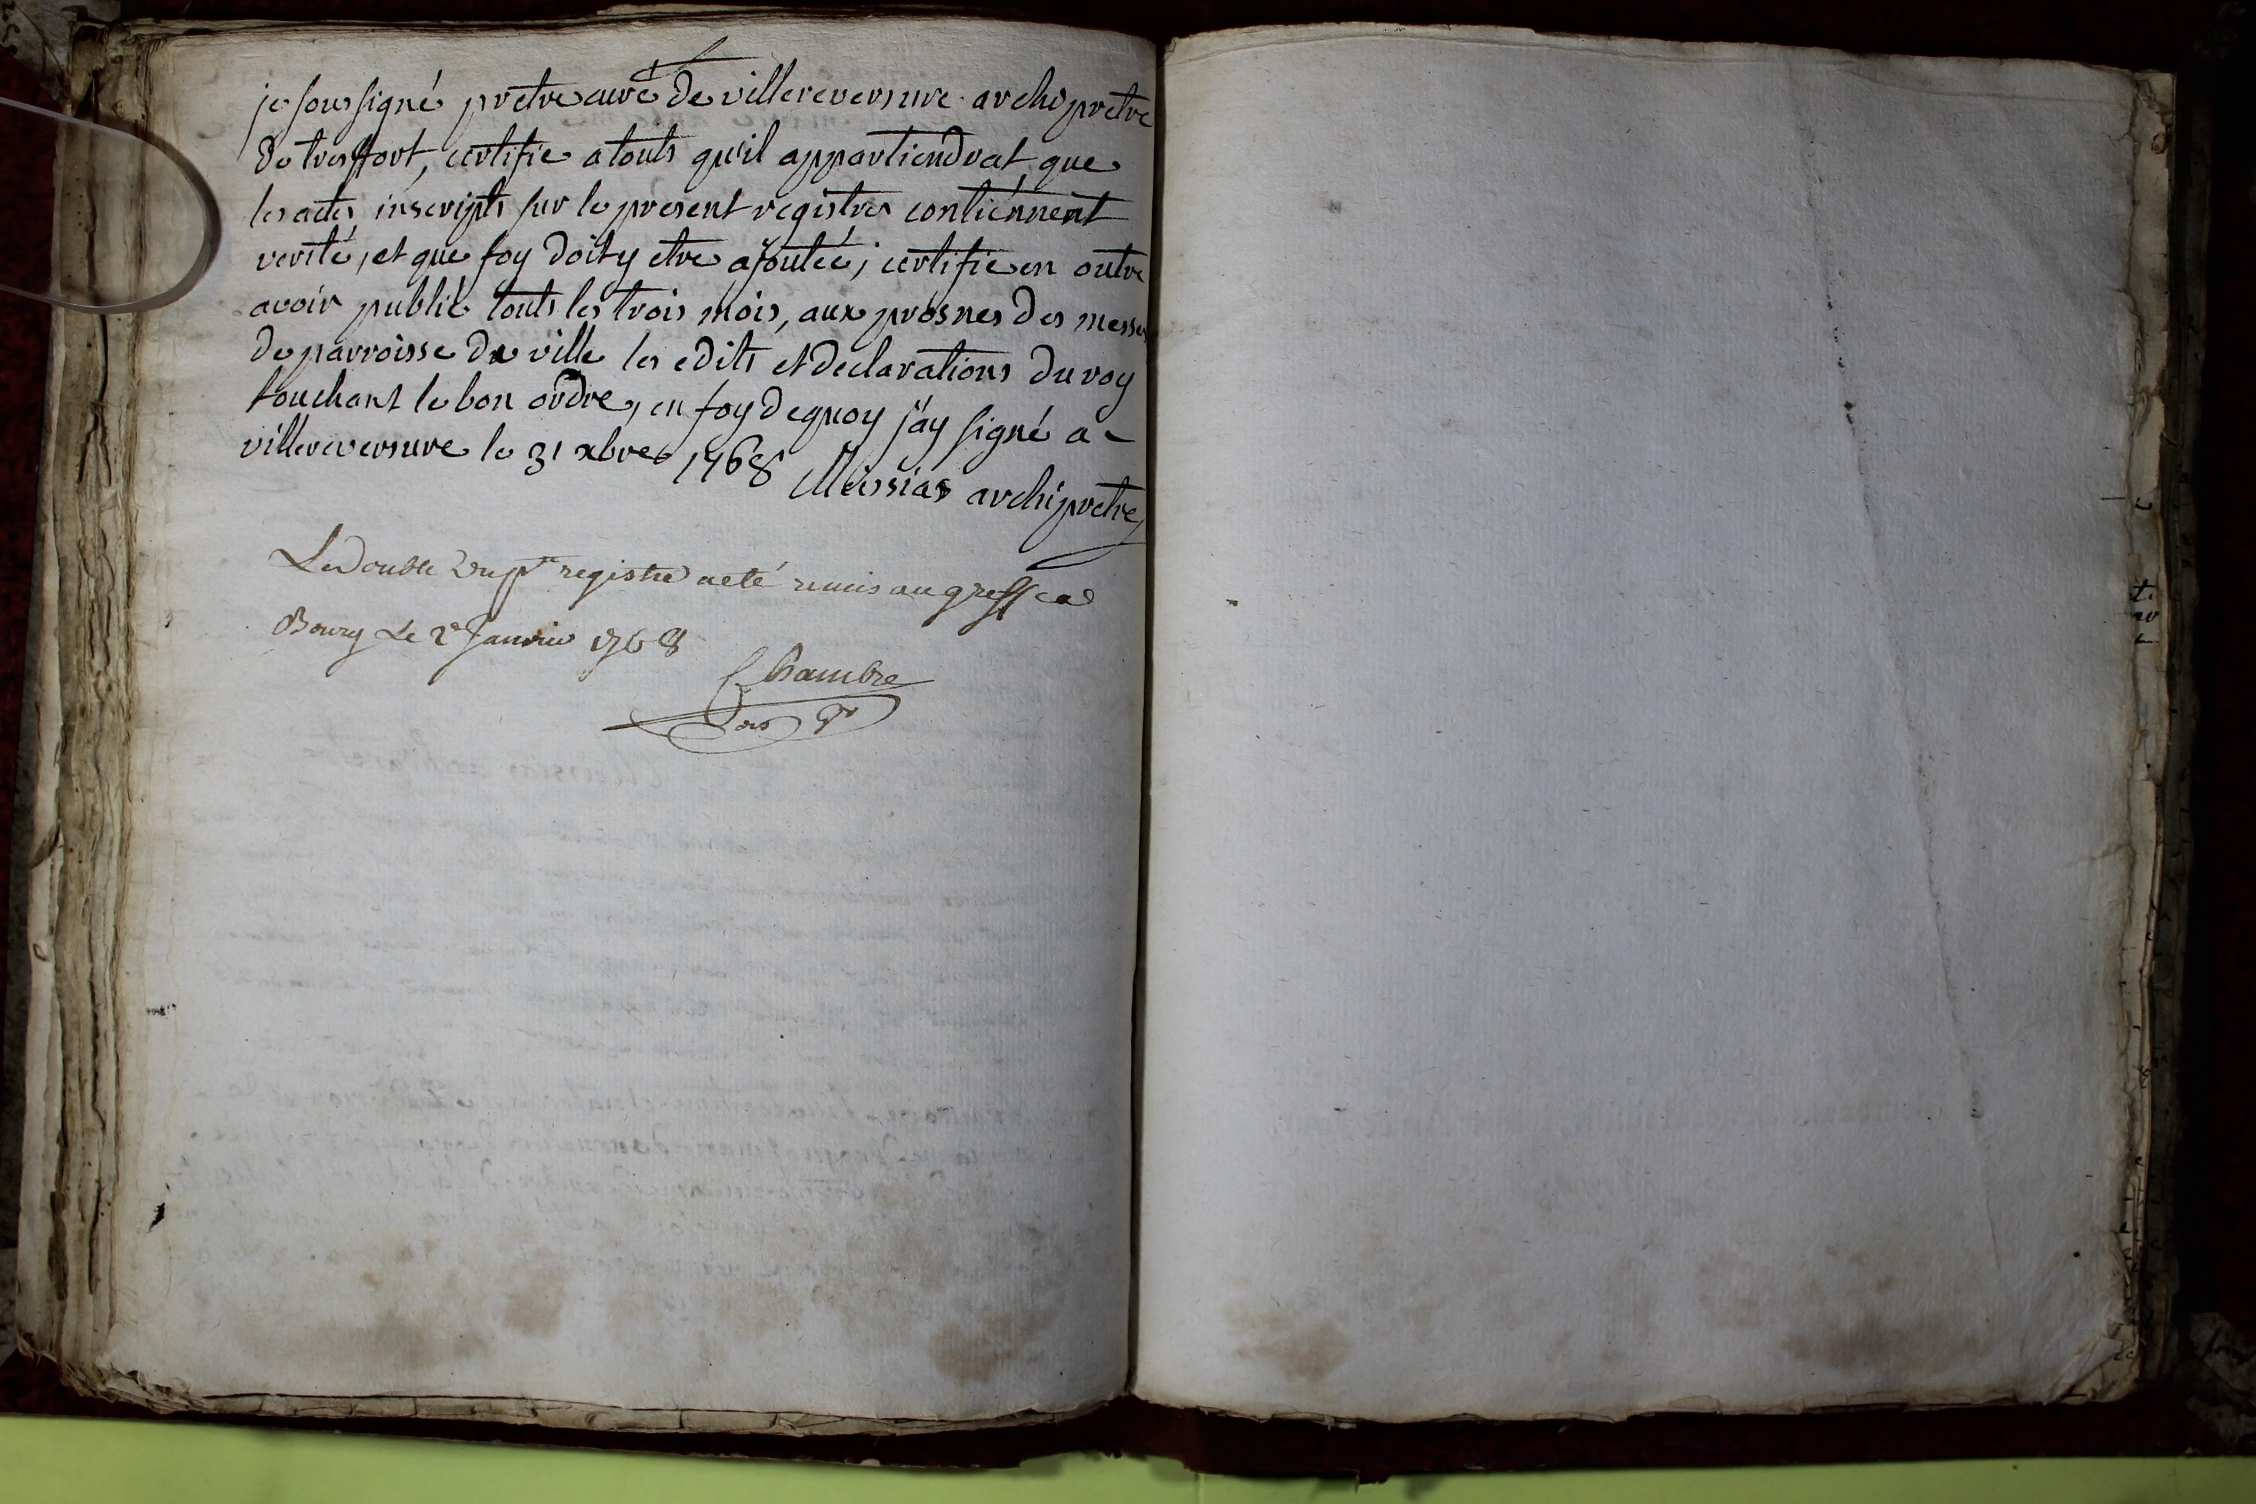 je sous signé pretre curé de villereversure archipretre
de tresffort, certifie a touts qu'il appartiendrat que
les actes inscripts sur le present registres contiénnent
verité, et que foy doit y etre ajoutée, certifie en outre
avoir publié touts les trois mois, aux prosnes des messes
de parroisse de ville les edits et declarations du roy
touchant le bon ordre, en foy dequoy j'ay signé a
villereversure le 31 xbre 1768 Messias archipretre
Le double du pnt registre a eté remis au greffe a
Bourg Le 2e Janvier 1768
Chambre